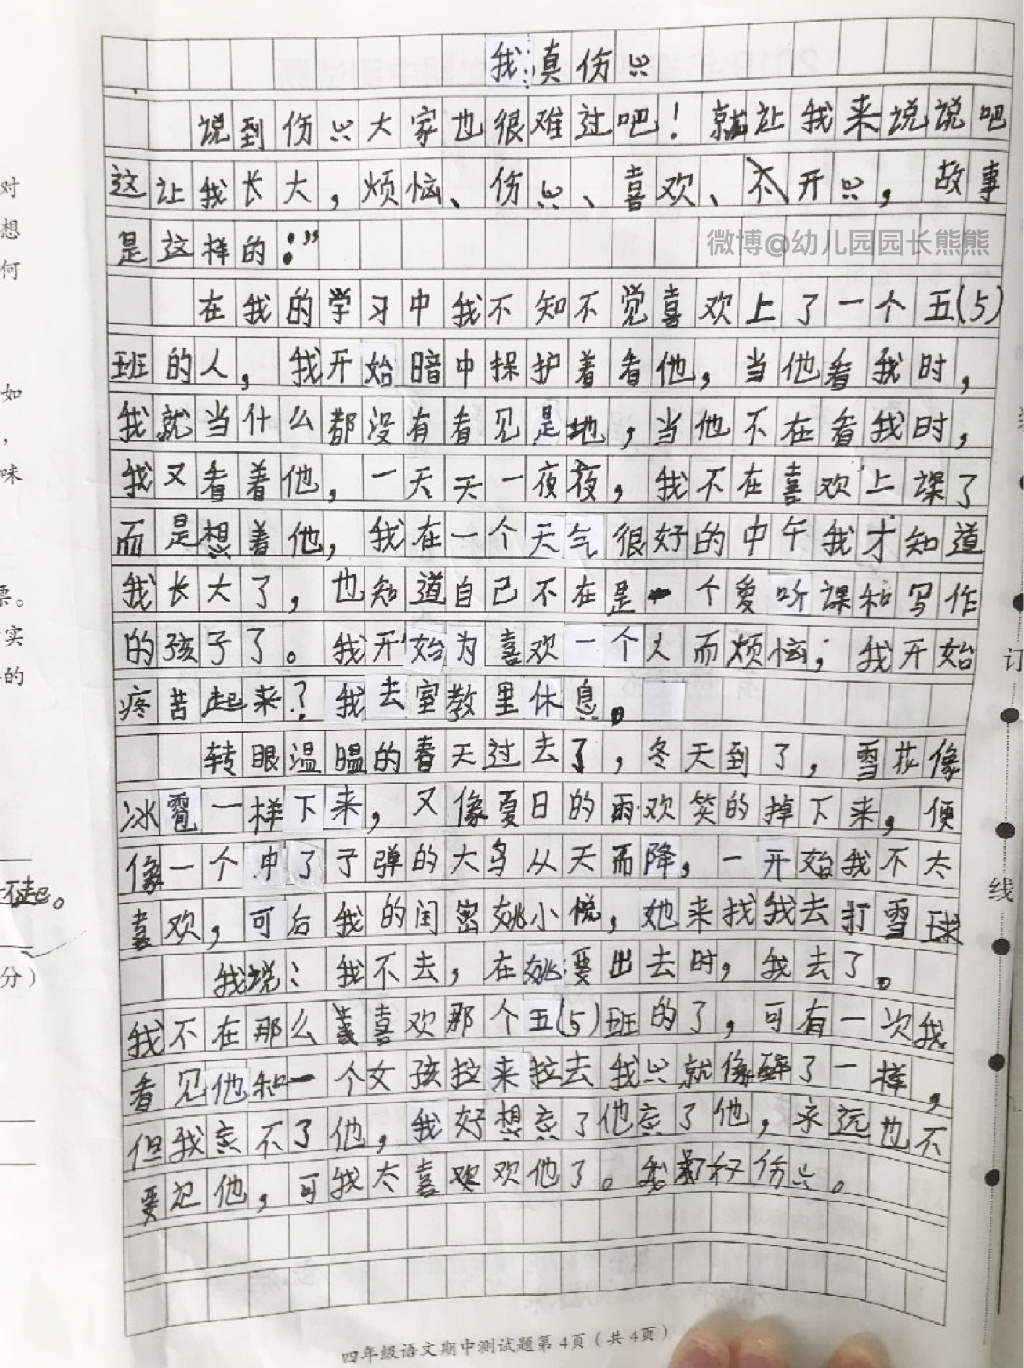 我真伤心
说到伤心大家也很难过吧！就让我来说说吧
这让我长大，烦恼、伤心、喜欢、不开心，故事
是这样的：”
微博@幼儿园园长熊熊
在我的学习中我不知不觉喜欢上了一个五(5)
班的人，我开始暗中保护着看他，当他看我时，
我就当什么都没有看见是地，当他不在看我时，
我又看着他，一天天一夜夜，我不在喜欢上课了
而是想着他，我在一个天气很好的中午我才知道
我长大了，也知道自己不在是一个爱听课和写作
的孩子了。我开始为喜欢一个人而烦恼；我开始
疼苦起来？我去室教里休息。
转眼温暖的春天过去了，冬天到了，雪花像
冰雹一样下来，又像夏日的雨欢笑的掉下来，便
像一个中了子弹的大鸟从天而降，一开始我不太
喜欢，可后我的闺密姚小悦，她来找我去打雪球
我说：我不去，在姚要出去时，我去了。
我不在那么喜欢那个五(5)班的了，可有一次我
看见他和一个女孩拉来拉去我心就像碎了一样，
但我忘不了他，我好想忘了他忘了他，永远也不
要记他，可我太喜欢欢他了。我好伤心。
四年级语文期中测试题第4页(共4页)
对
想
何
如
，
味
票。
实
的
分)
订
线